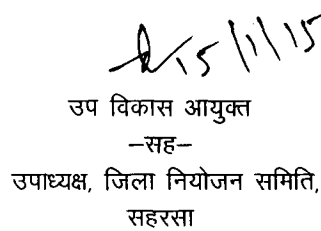 15/1/15
उप विकास आयुक्त
–सह–
उपाध्यक्ष, जिला नियोजन समिति,
सहरसा